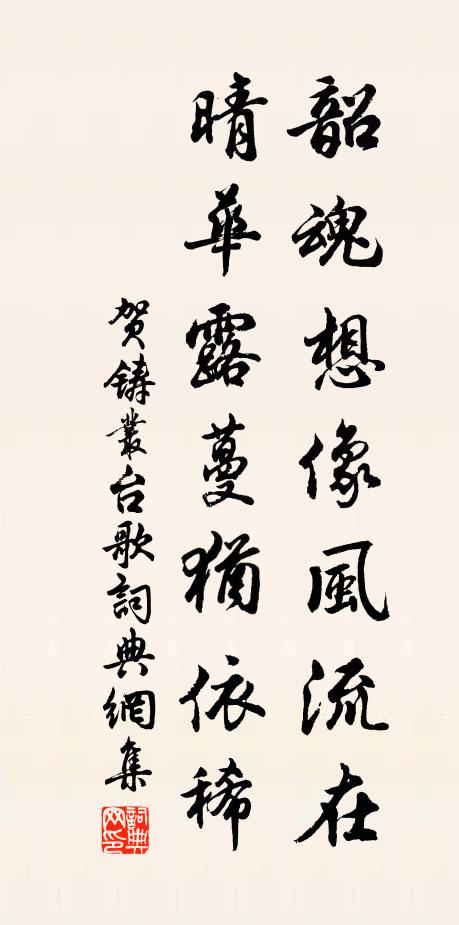 韶魂想像風流在
晴華露蔓猶依稀
贺鑄叢台歌詞典網集
詞典网印